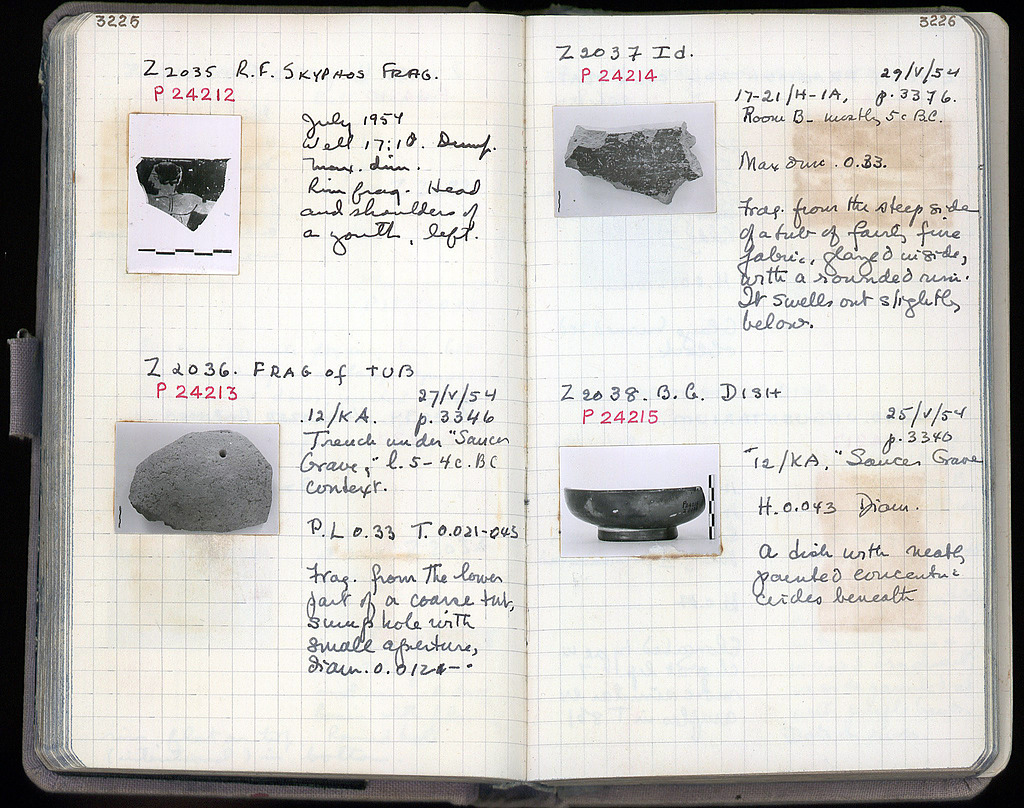 3225
Z 2035 R.F. SKYPHOS FRAG.
P 24212
July 1954
Well 17:18. Dump.
Max. dim.
Rim frag. Head
and shoulders of
a youth, left.
Z 2036. FRAG of TUB
P 24213
27/V/54
12/KA. p.3346
Trench under "Saucer
Grave," l.5-4c. BC
context.
P.L 0.33 T. 0.021-043
Frag. from the lower
part of a coarse tub,
sump hole with
small aperture,
diam. 0.012
3226
Z 2037 Id.
P 24214
29/V/54
17-21/H-IA, p.3376.
Room B- mostly 5c B.C.
Max dim. 0.33.
Frag. from the steep side
of a tub of fairly fine
fabric, glazed inside,
with a rounded rim.
It swells out slightly
below.
Z 2038. B.G. DISH
P 24215
25/V/54
p.3340
12/KA, "Saucer Grave
H. 0.043 Diam.
A dish with neatly
painted concentric
circles beneath